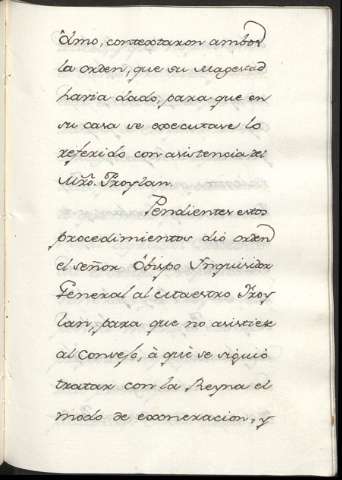 Ôlmo, contextaron ambos
la orden, que su Magestad
havia dado, para que en
su casa se executase lo
referido con asistencia del
Mrô. Froylan.
Pendientes estos
procedimientos dió orden
el señor Obispo Ynquisidor
General al Maestro Froy
lan, para que no asistiese
al Consejo, à què se siguió
tratar con la Reyna el
modo de exoneracion, y